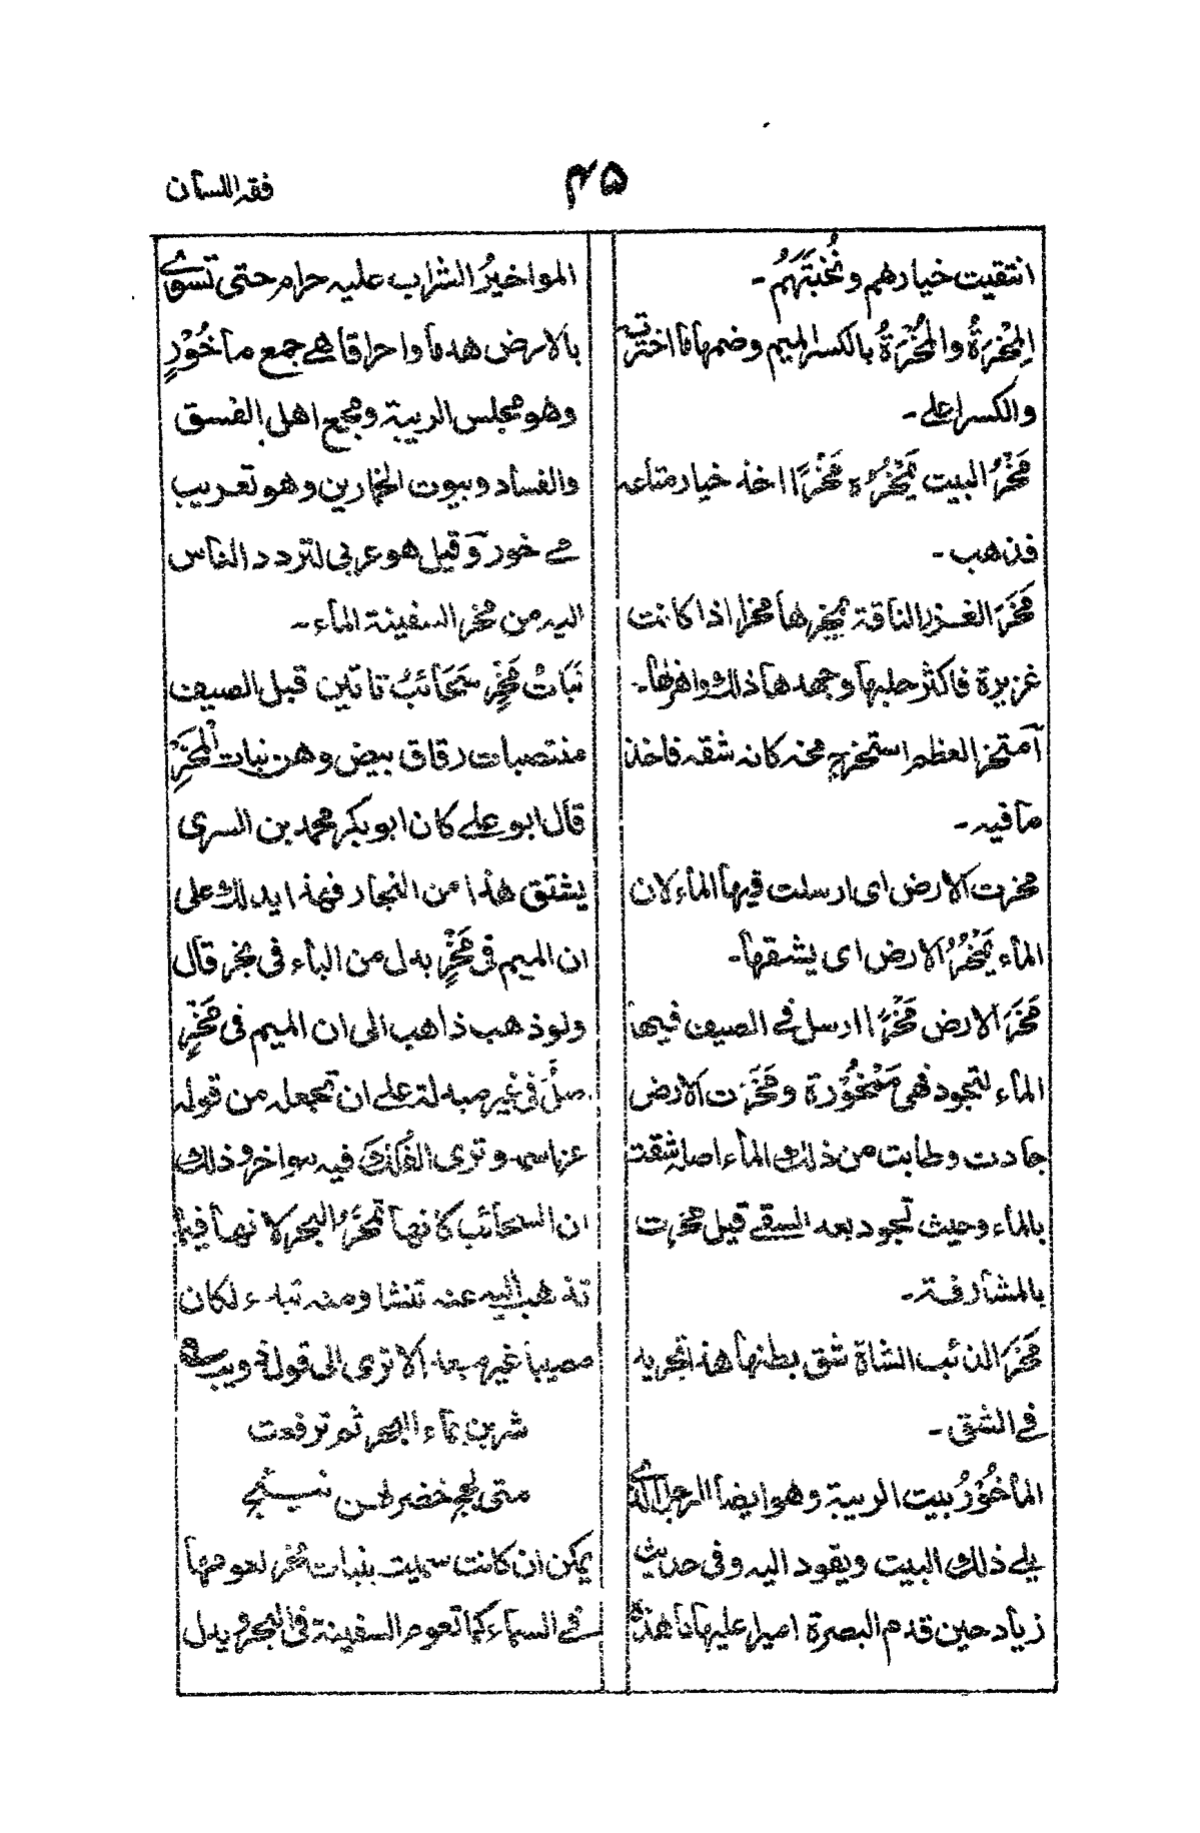 ۴۵
فقہ اللسان
انتقیت خیارهم ونُخْبَتَهُم۔
المِخْرَةُ والمُخْرَةُ بالکسر المیم وضمها ما اخترته
والکسر اعلی۔
مَخْرُ البیت یَمْخَرُہ مَخْرًا اخذ خیار متاعه
فذهب۔
مَخَرَ الغزر الناقة یمخرها مخرا اذا کانت
غزیرة فاکثر حلبها وجهدها ذلك واهزلها۔
آمتخر العظم استخرج مخه کانه شقه فاخذ
ما فیه۔
مخرت الارض ای ارسلت فیها الماء لان
الماء یَمْخَرُ الارض ای یشقها۔
مَخَرَ الارض مَخْرًا ارسل فی الصیف فیها
الماء لتجود فهی مَمْخُوْرة ومَخَرَت الارض
جادت وطابت من ذلك الماء اصله شقت
بالماء وحیث تجود بعد السقی قیل مخرت
بالمشارفة۔
مَخَرَ الذئب الشاة شق بطنها هذا تجربه
فی الشق۔
الماخُوْرُ بیت الریبة وهو ایضا الرجل الذی
یلی ذلك البیت ویقود الیه وفی حدیث
زیاد حین قدم البصرة امیرا علیها ما هذه
المواخیرُ الشراب علیه حرام حتی تسوی
بالارض هدما واحراقا هی جمع ماخُوْرٍ
وهو مجلس الریبة ومجمع اهل الفسق
والفساد وبیوت الخمارین وهو تعریب
می خور وقیل هو عربی لتردد الناس
الیه من مخر السفینة الماء۔
بَنَاتُ مَخْرٍ سَحَائبُ تاتین قبل الصیف
منتصبات رقاق بیض وهن بنات المَخْرِ
قال ابو علی کان ابو بکر محمد بن السری
یشتق هذا من البخار فهذا یدلك علی
ان المیم فی مَخْرٍ بدل من الباء فی بخر قال
ولو ذهب ذاهب الی ان المیم فی مَخْرٍ
اصل فی غیر مبدلة علی ان تجعله من قوله
عز اسمه وتری الفُلْكَ فیه مواخر وذلك
ان السحائب کانها تمخَرُ البحر لانها فیما
تذهب الیه عنه تنشا ومنه تبدء لکان
مصیبا غیر مبعد الا تری الی قول ابی ذویب
شربن بماء البحر ثم ترفعت
متی لجج خضر لهن نئیج
یمکن ان کانت سمیت بنبات مخر لعومها
فی السماء کما تعوم السفینة فی البحر ویدل